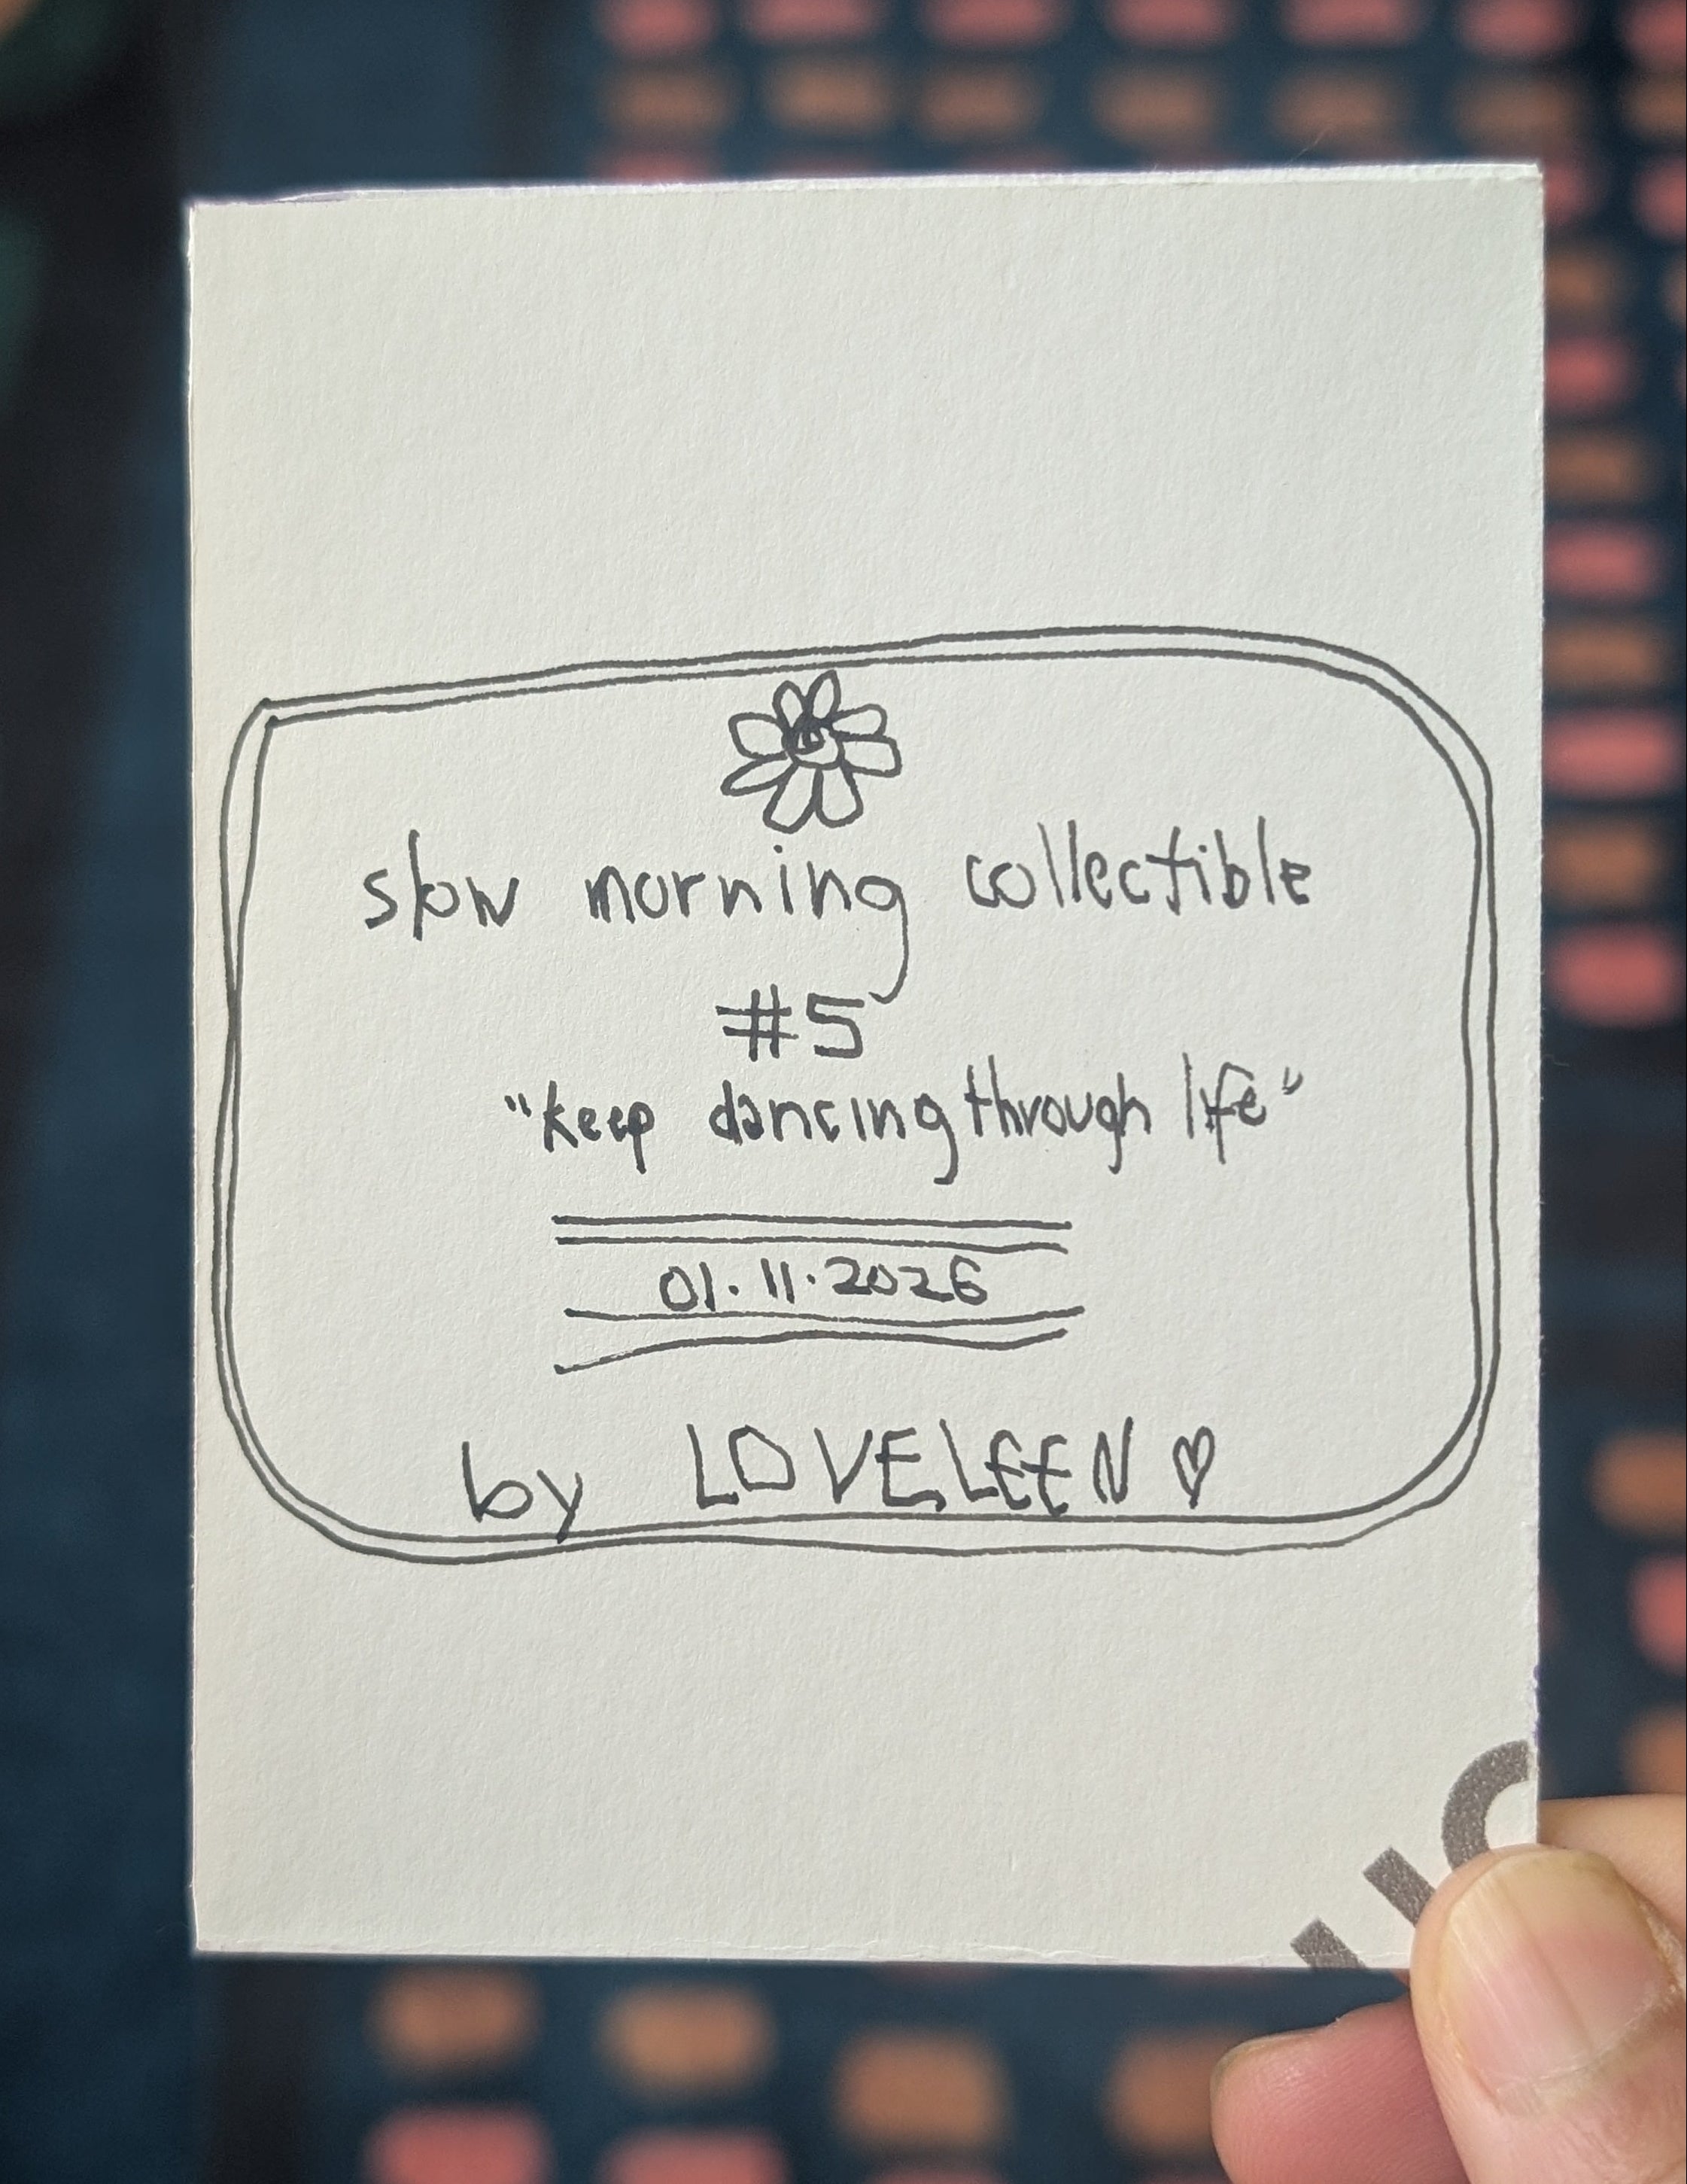 slow morning collectible
#5
"keep dancing through life"
01.11.2026
by LOVELEEN ♡